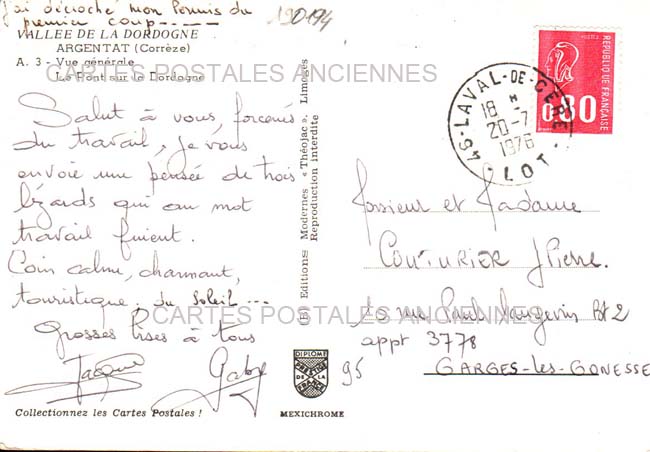 j'ai décroché mon Permis du
premier coup-----
190194
VALLEE DE LA DORDOGNE
ARGENTAT (Corrèze)
A. 3 - Vue générale
Le Pont sur la Dordogne
CARTES POSTALES ANCIENNES
Salut à vous, forcenés
du travail, je vous
envoie une pensée de trois
lézards qui au mot
travail fuient.
Coin calme, charmant,
touristique. du soleil ---
CARTES POSTALES ANCIENNES
Grosses bises à tous
Jacques Gaby
Collectionnez les Cartes Postales !
(B) Editions Modernes « Théojac », Limoges
Reproduction Interdite
DIPLOME
PRESTIGE
DE LA
FRANCE
MEXICHROME
46-LAVAL-DE-CERE
18 H
20-7
1976
LOT
0,80
REPUBLIQUE FRANÇAISE
POSTES
Monsieur et Madame
COUTURIER J Pierre
10 rue Paul Langevin Bt 2
appt 3778
95 GARGES-les-GONESSE